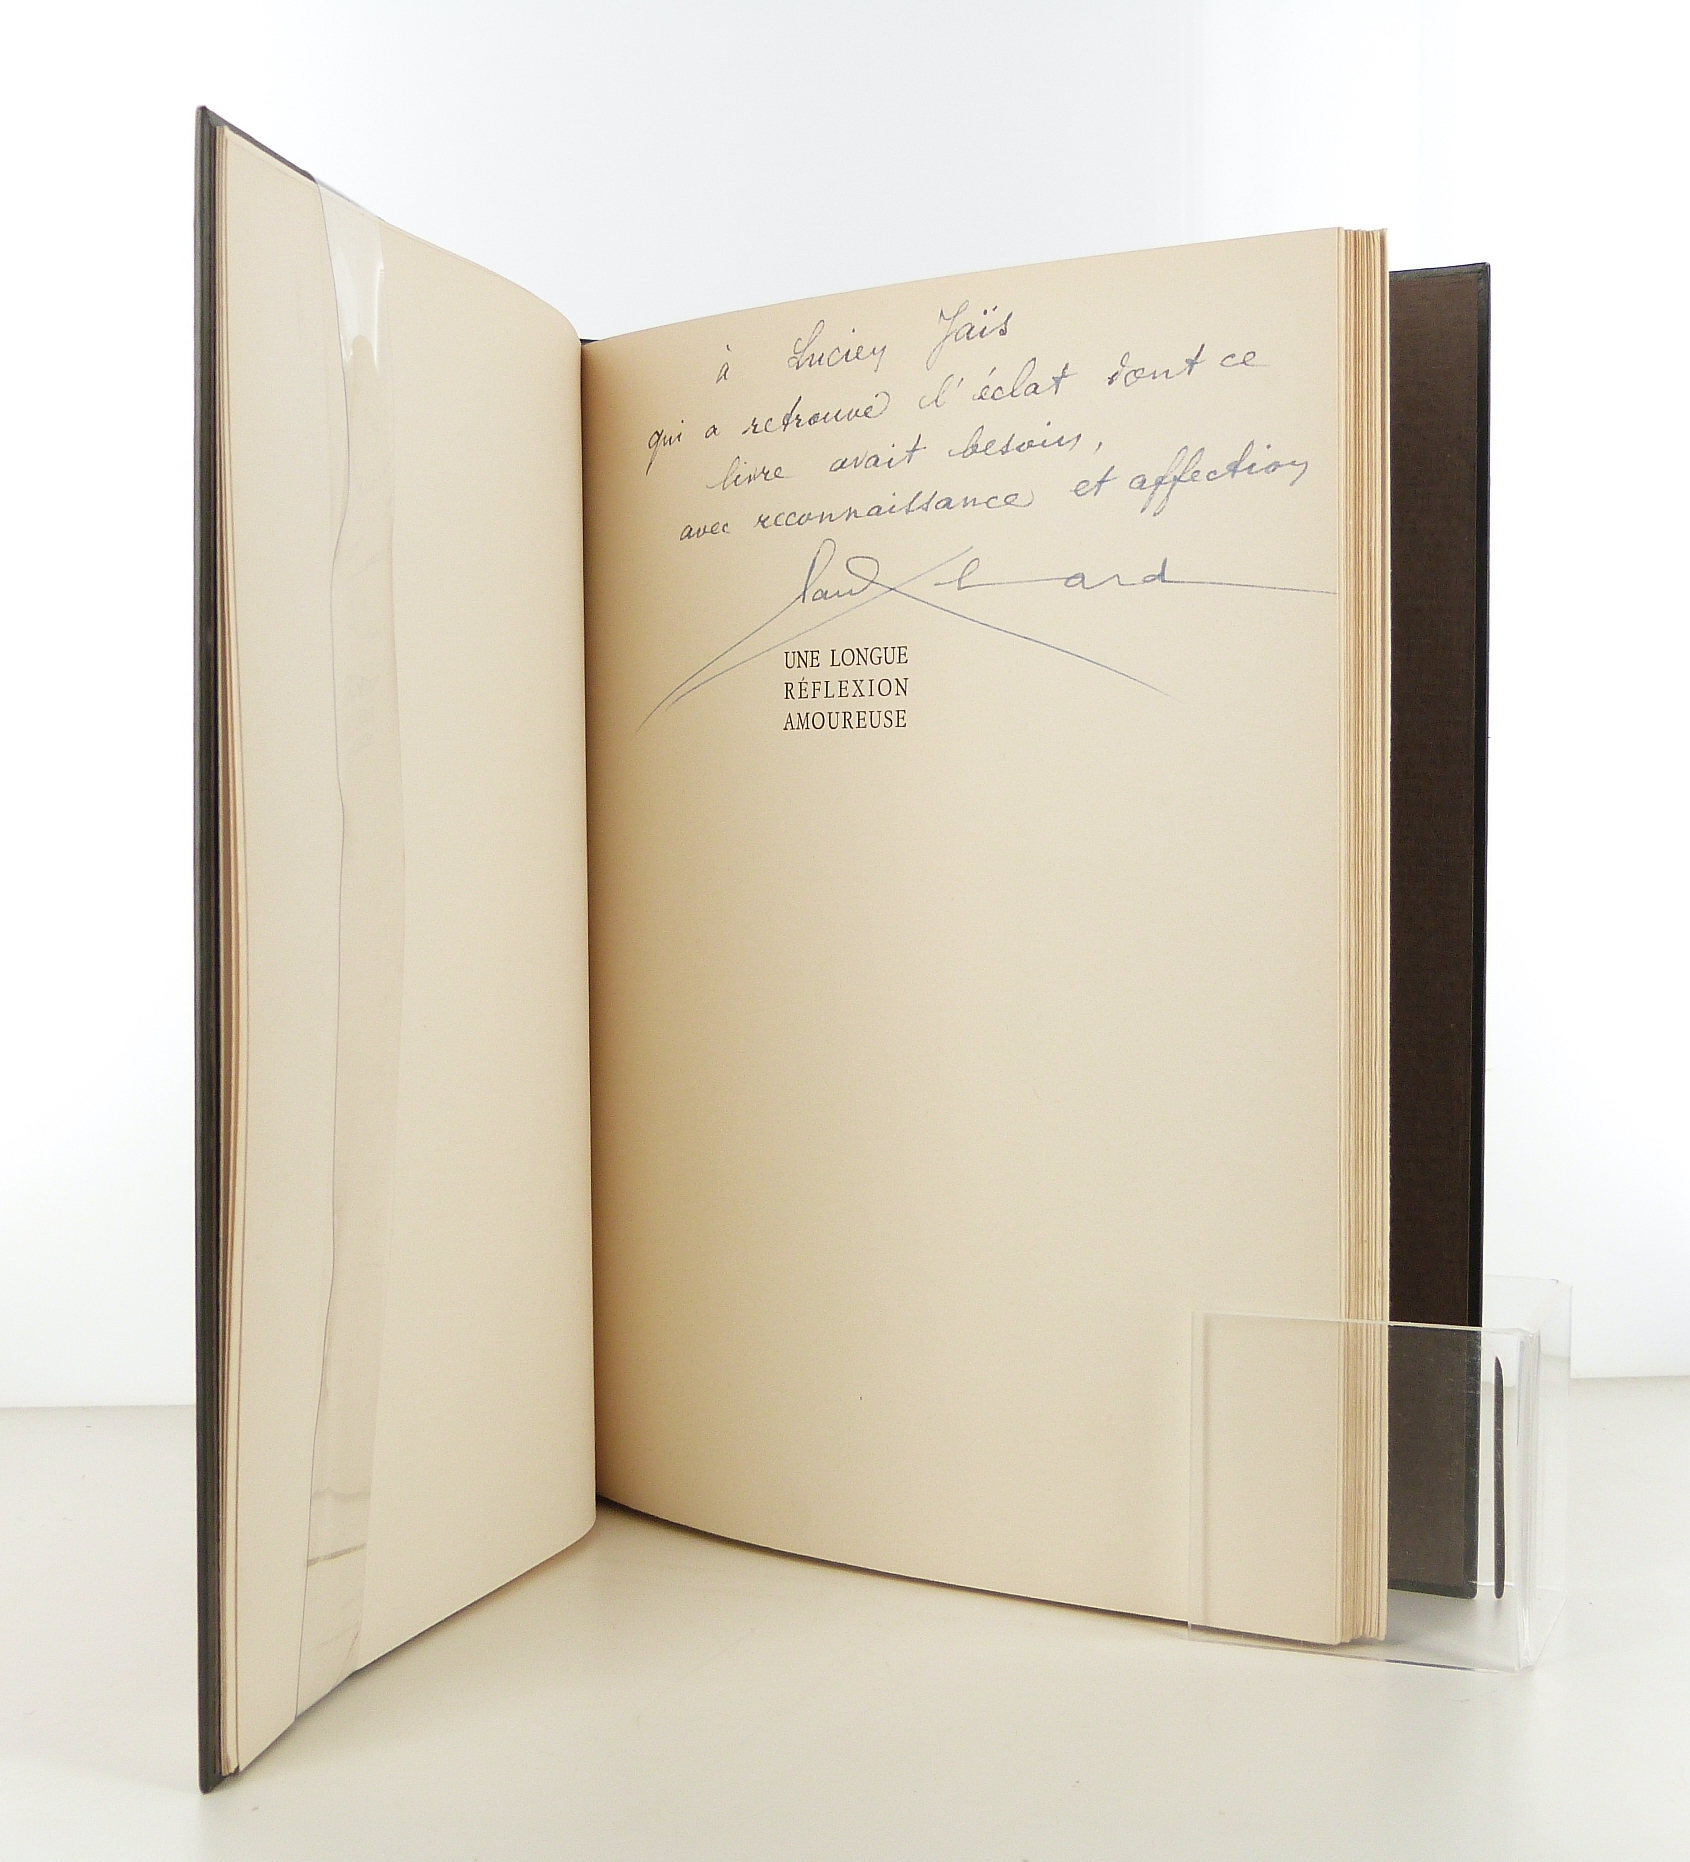 à Lucien Jaïs
qui a retrouvé l'éclat dont ce
livre avait besoin,
avec reconnaissance et affection
Paul Eluard
UNE LONGUE
RÉFLEXION
AMOUREUSE